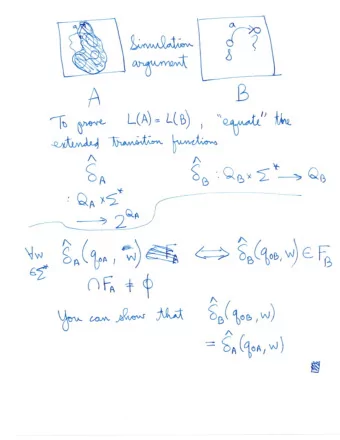 a
a
Simulation
argument
?
δ
A
B
To prove L(A) = L(B), "equate" the
extended transition functions
δ̂_A δ̂_B : Q_B × Σ* → Q_B
: Q_A × Σ*
→ 2^{Q_A}
∀w δ̂_A(q_{0A}, w) ⟺ δ̂_B(q_{0B}, w) ∈ F_B
∈Σ* ∩ F_A ≠ ϕ
You can show that δ̂_B(q_{0B}, w)
= δ̂_A(q_{0A}, w)